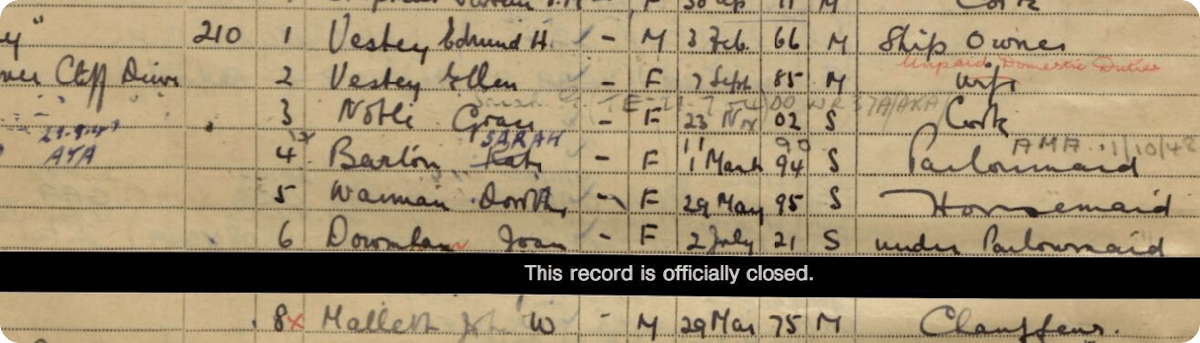 Cook
y" 210 1 Vestey Edmund H. - M 3 Feb. 66 M Ship Owner
Unpaid Domestic Duties
Cliff Drive 2 Vestey Ellen - F 7 Sept 85 M Wife
3 Noble Grace - F 23 Nov 02 S Cook
SARAH 11 90 AMA 1/10/48
AYA 4 Barton Kate - F 1 March 94 S Parlourmaid
5 Warman Doroth - F 29 May 95 S Housemaid
6 Joan - F 2 July 21 S under Parlourmaid
This record is officially closed.
8x Mallett John W - M 29 Mar 75 M Chauffeur.